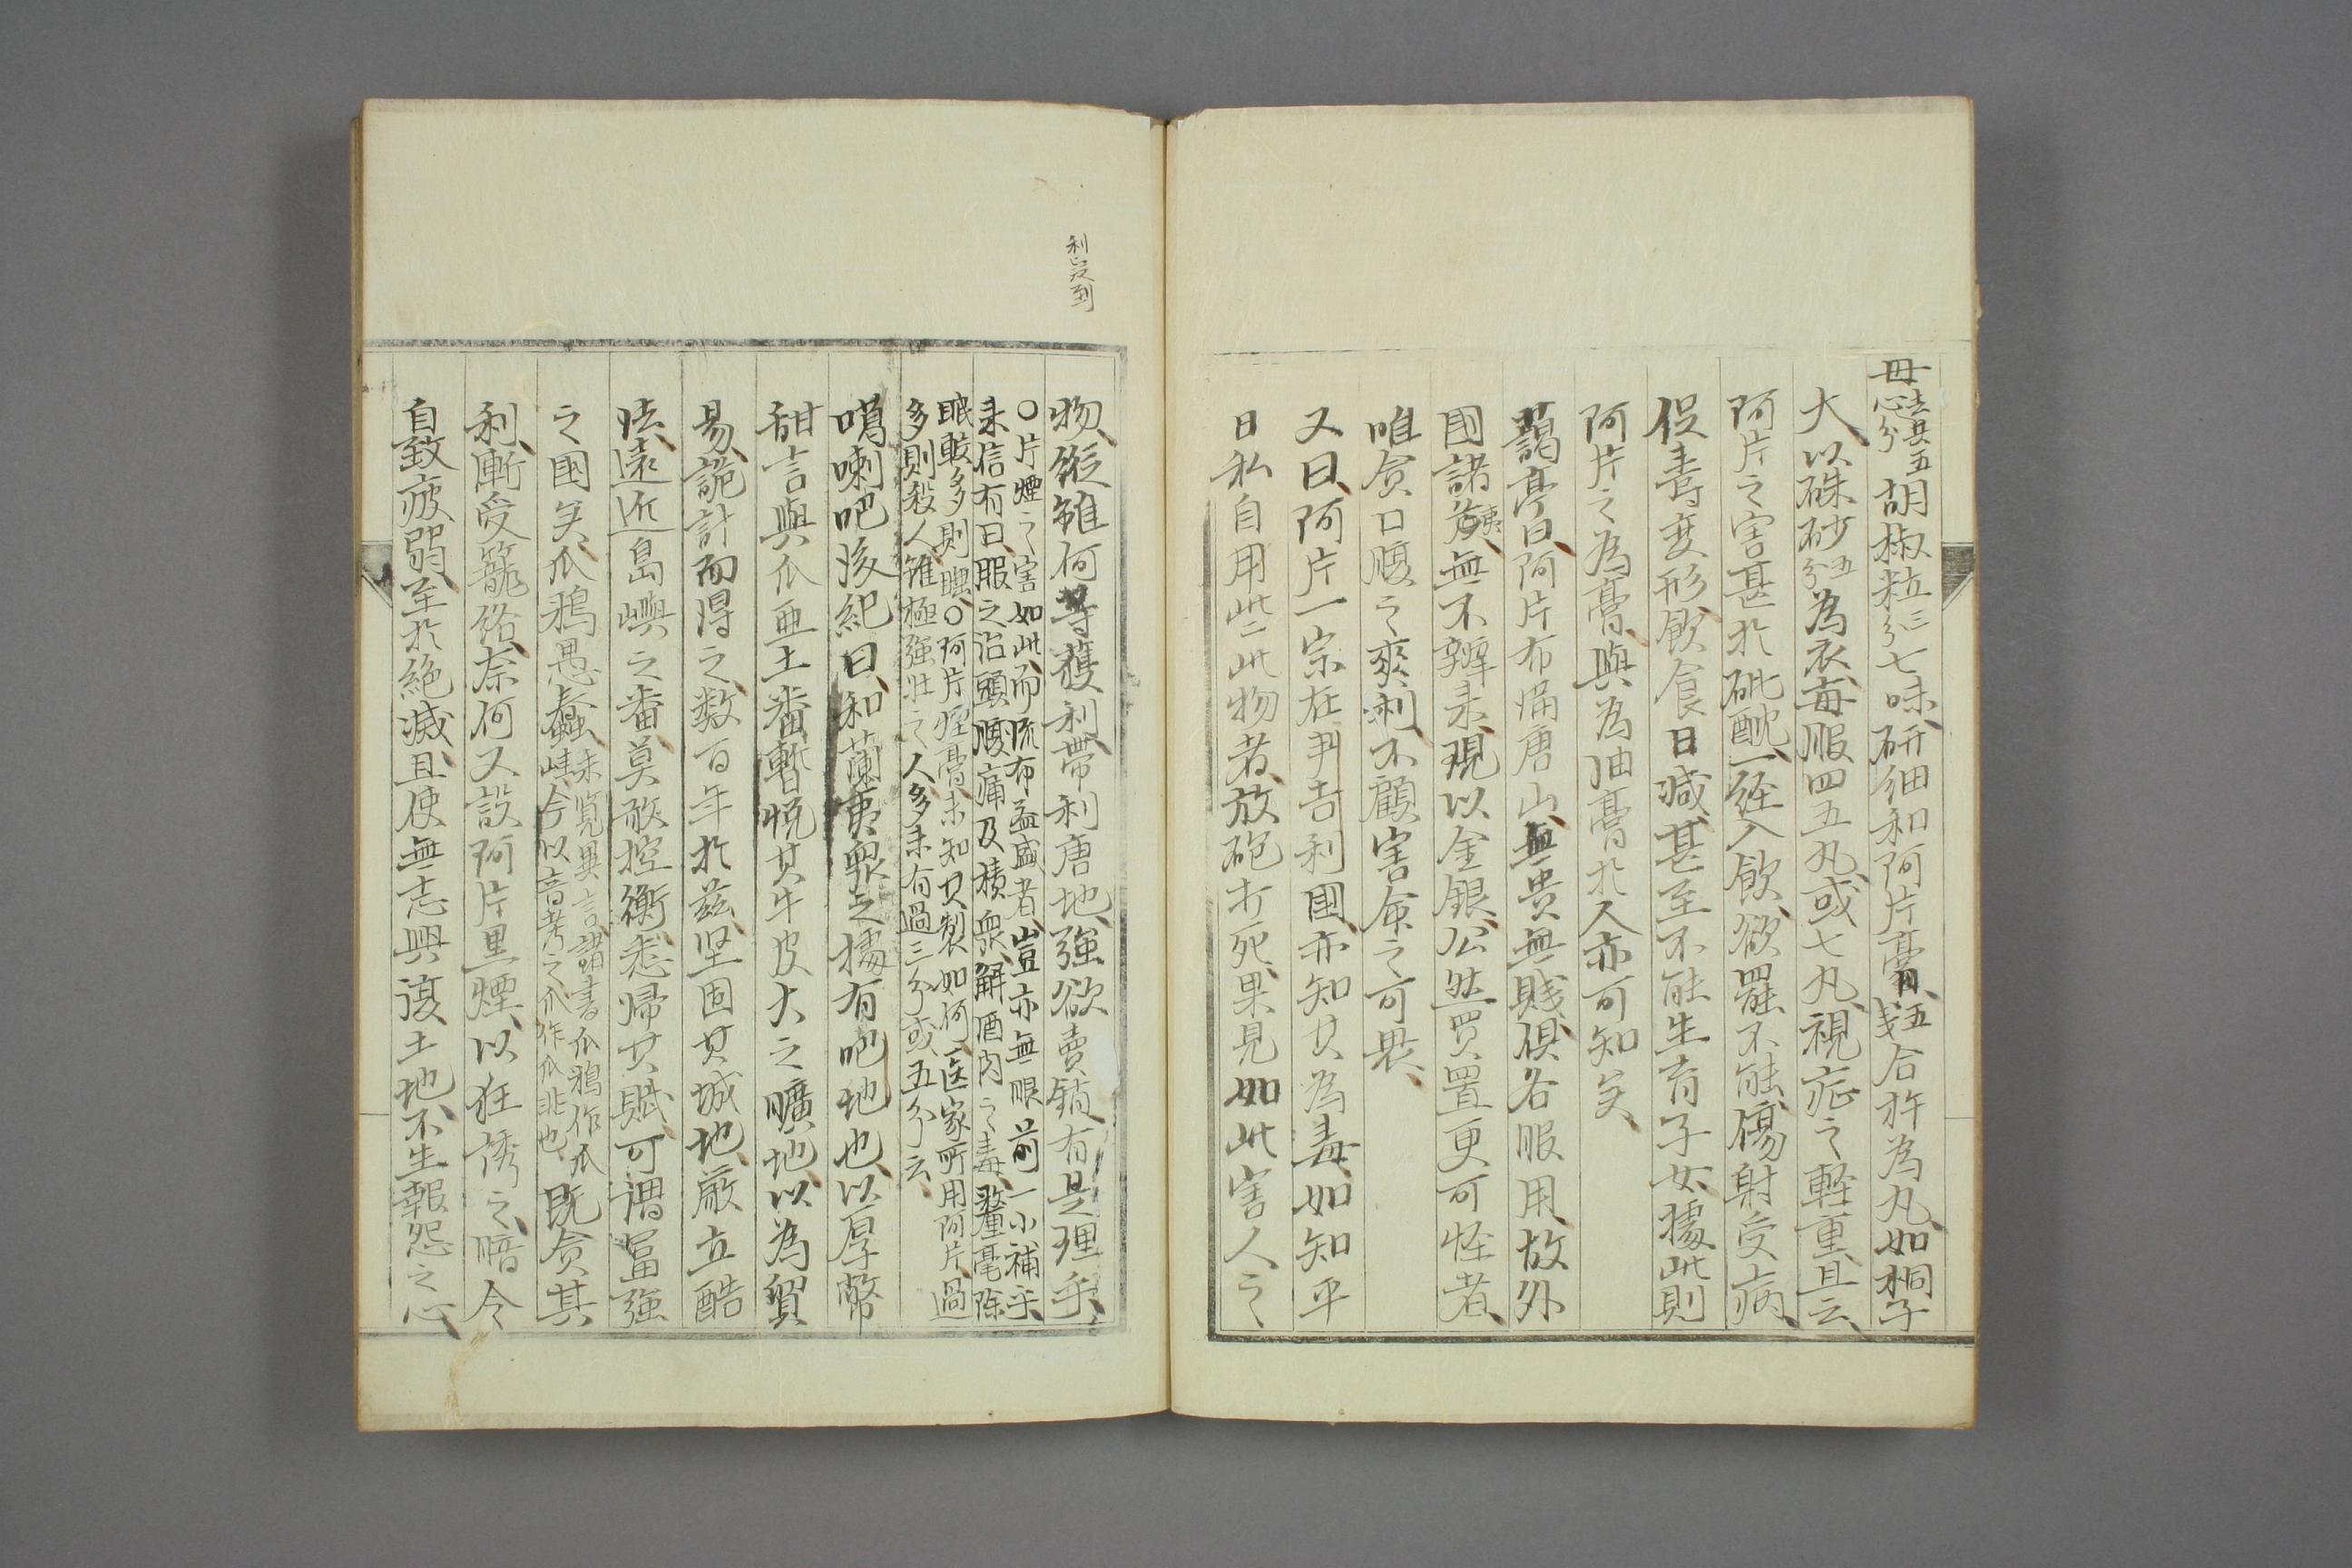 母去心五分胡椒粒三分七味研細和阿片膏五錢合杵為丸如桐子
大以硃砂五分為衣毎服四五丸或七丸視症之軽重且云
阿片之害甚於砒酖一経入飲欲罷不能傷射受病
促寿変形飲食日減甚至不能生育子女據此則
阿片之為膏與為油膏於人亦可知矣
藹亭曰阿片布満唐山無貴無賤倶各服用故外
國諸夷無不辦来現以金銀公然買置更可怪者
唯貪口腹之爽利不顧害命之可畏
又曰阿片一宗在尹吉利國亦知其為毒如知平
日私自用此二此物者放砲打死果見如此害人之
利必及到
物縦雖何等獲利帯利唐地強欲賣銷有是理乎
○片煙之害如此而流布益盛者豈亦無眼前一小補乎
来信有曰服之治頭腹痛及積衆解酒肉之毒釐毫除
眠較多則睡○阿片煙膏未知其製如何医家所用阿片過
多則殺人雖極強壮之人多未有過三分或五分云
噶喇吧後紀曰和蘭夷衆之據有吧地也以厚幣
甜言與爪亜土番暫悦其牛皮大之曠地以為貿
易詭計而得之数百年於茲堅固其城地厳立酷
法遠近島嶼之番莫敢控衡悉帰其賦可謂冨強
之國矣爪鴉愚蠢
未覧異言諸書爪鴉作爪
哇今以音考之爪作爪非也
既貪其
利漸受籠絡奈何又設阿片黒煙以狂誘之暗令
自致疲弱至於絶滅且使無志興復土地不生報怨之心